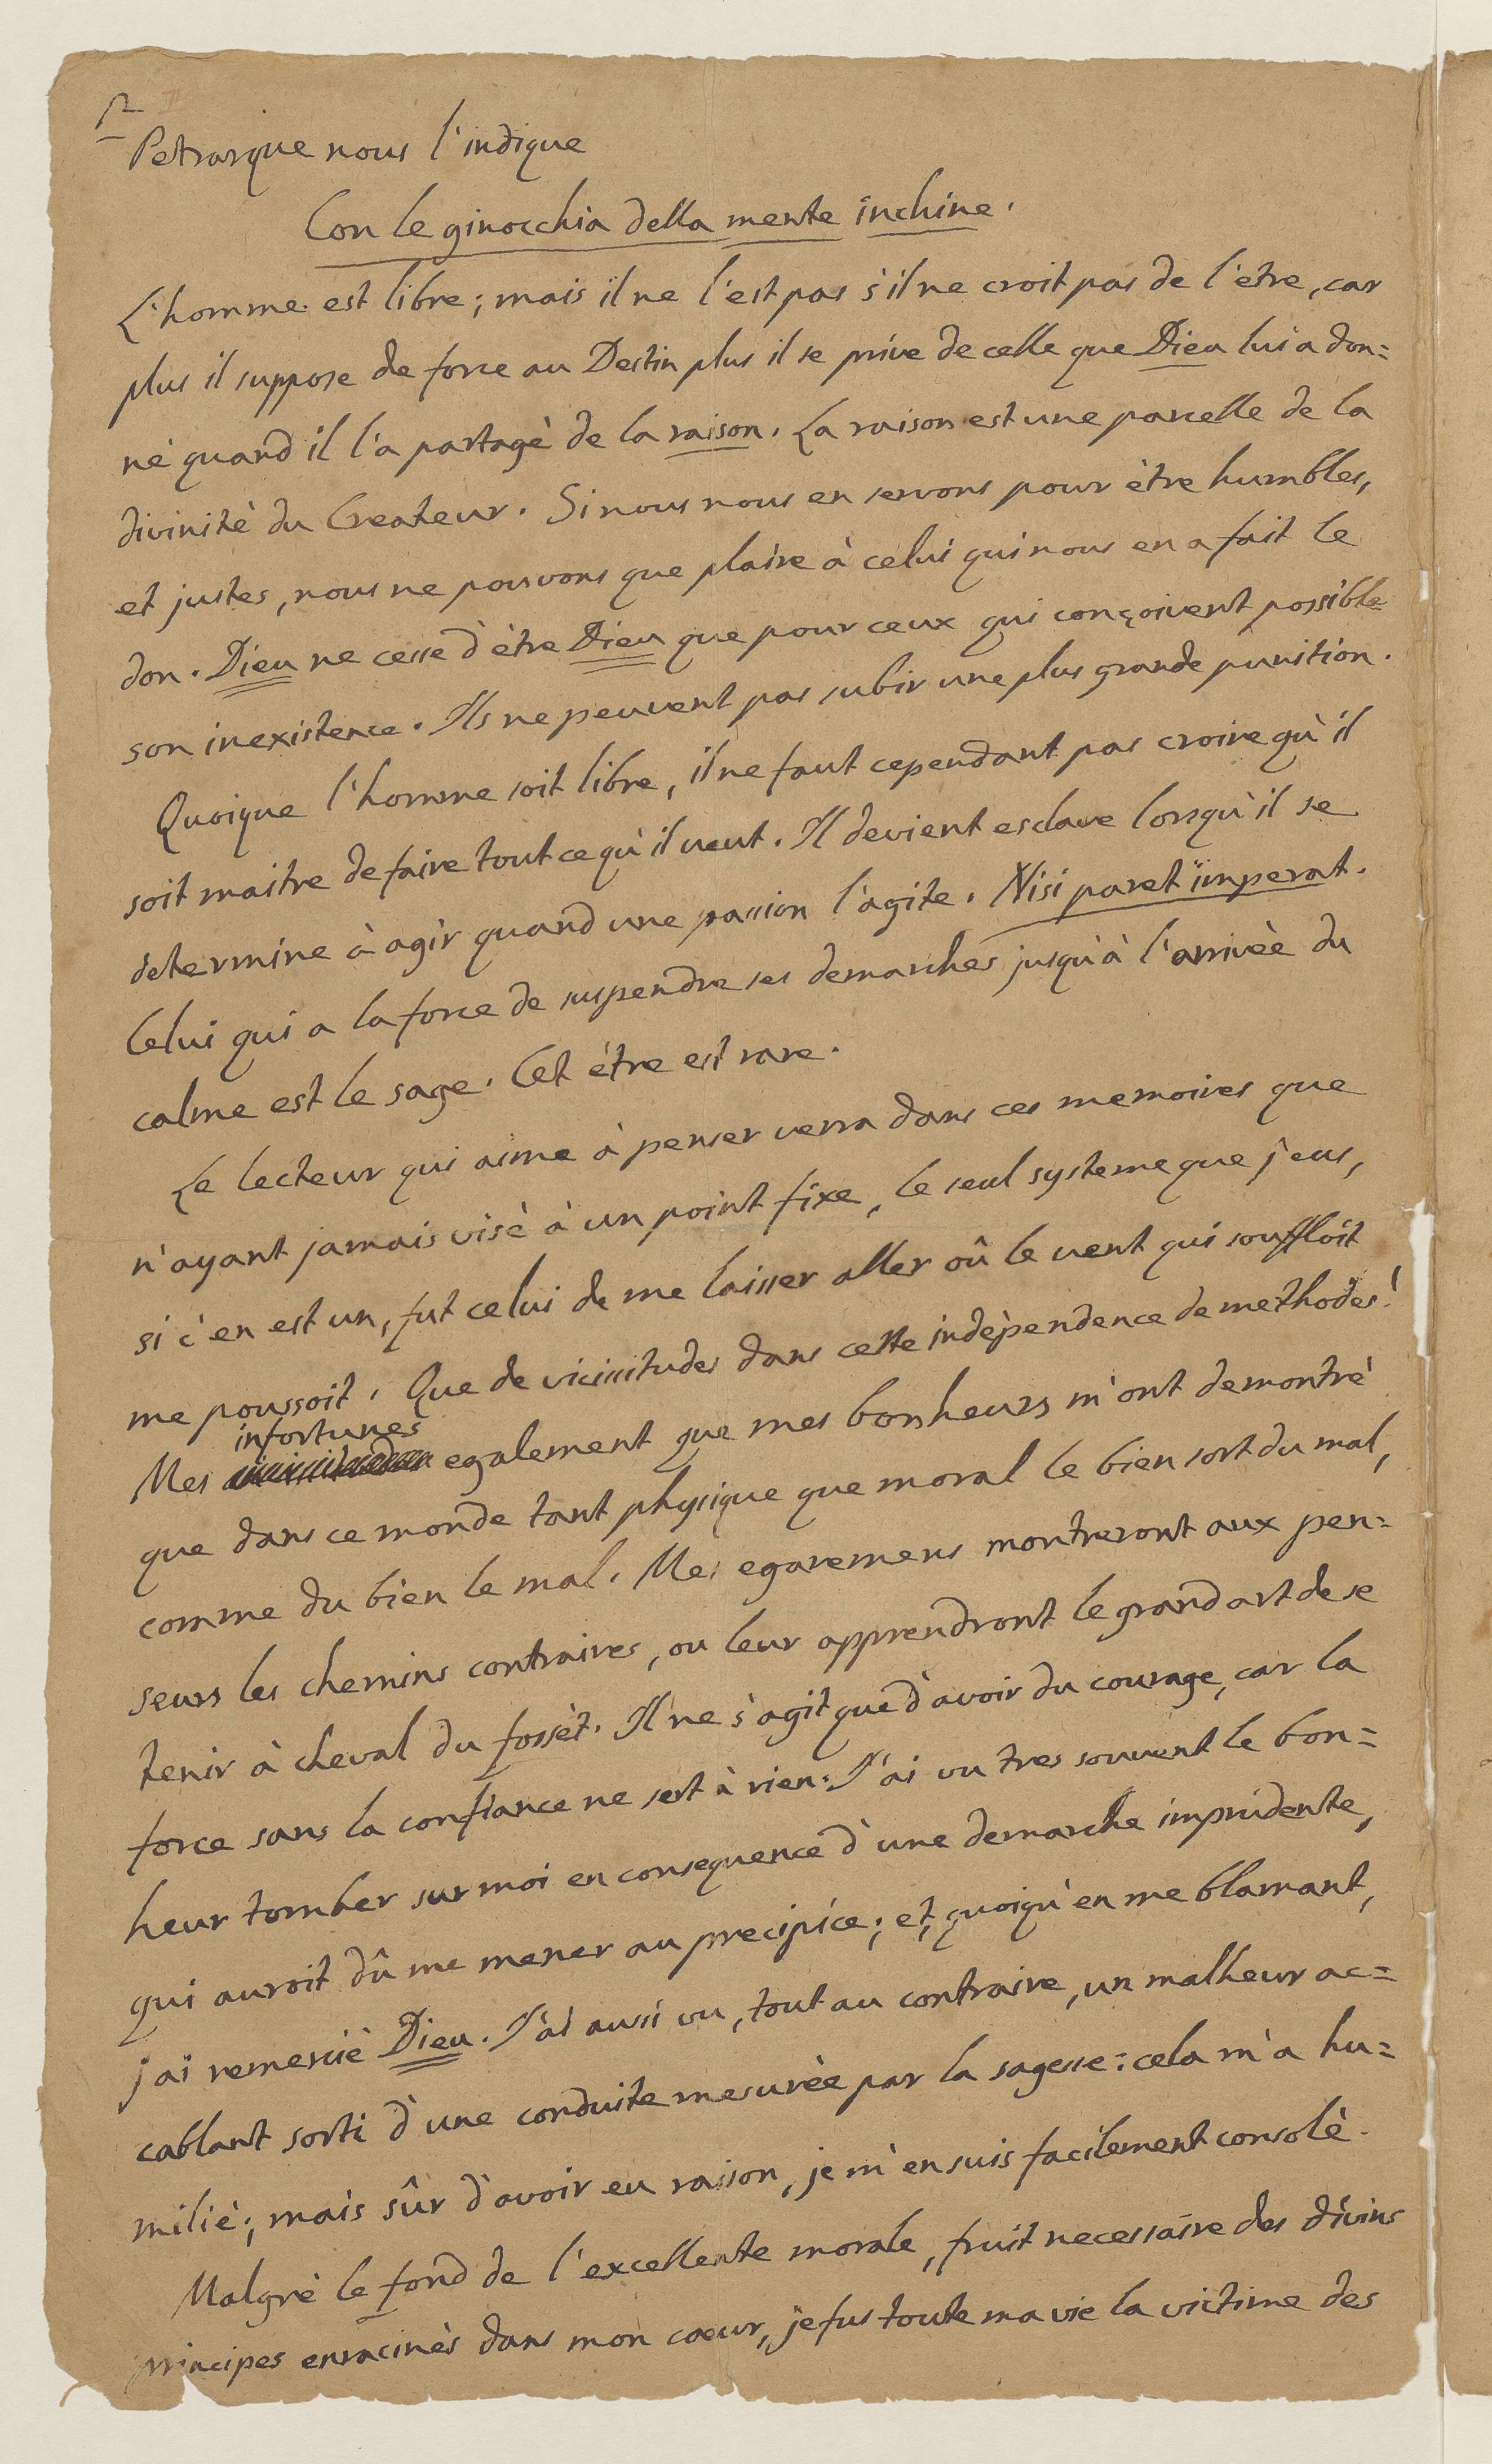 Petrarque nous l'indique
Con le ginocchia della mente inchine.
L'homme est libre; mais il ne l'est pas s'il ne croit pas de l'être, car
plus il suppose de force au Destin plus il se prive de celle que Dieu lui a don=
né quand il l'a partagè de la raison. La raison est une parcelle de la
divinitè du Createur. Si nous nous en servons pour être humbles,
et justes, nous ne pouvons que plaire à celui qui nous en a fait le
don. Dieu ne cesse d'être Dieu que pour ceux qui conçoivent possible
son inexistence. Ils ne peuvent pas subir une plus grande punition.
Quoique l'homme soit libre, il ne faut cependant pas croire qu'il
soit maitre de faire tout ce qu'il veut. Il devient esclave lorsqu'il se
determine à agir quand une passion l'agite. Nisi paret imperat.
Celui qui a la force de suspendre ses demarches jusqu'à l'arrivèe du
calme est le sage. Cet être est rare.
Le lecteur qui aime à penser verra dans ces memoires que
n'ayant jamais visè à un point fixe, le seul systeme que j'eus,
si c'en est un, fut celui de me laisser aller oû le vent qui souffloit
me poussoit. Que de vicissitudes dans cette indèpendence de methodes!
infortunes
Mes egalement que mes bonheurs m'ont demontrè
que dans ce monde tant physique que moral le bien sort du mal,
comme du bien le mal. Mes egaremens montreront aux pen=
seurs les chemins contraires, ou leur apprendront le grand art de se
tenir à cheval du fossèt. Il ne s'agit que d'avoir du courage, car la
force sans la confiance ne sert à rien. J'ai vu tres souvent le bon=
heur tomber sur moi en consequence d'une demarche imprudente,
qui auroit dû me mener au precipice; et, quoiqu'en me blamant,
j'ai remerciè Dieu. J'ai aussi vu, tout au contraire, un malheur ac=
cablant sorti d'une conduite mesurèe par la sagesse: cela m'a hu=
miliè; mais sûr d'avoir eu raison, je m'en suis facilement consolè.
Malgrè le fond de l'excellente morale, fruit necessaire des divins
principes enracinès dans mon cœur, je fus toute ma vie la victime des